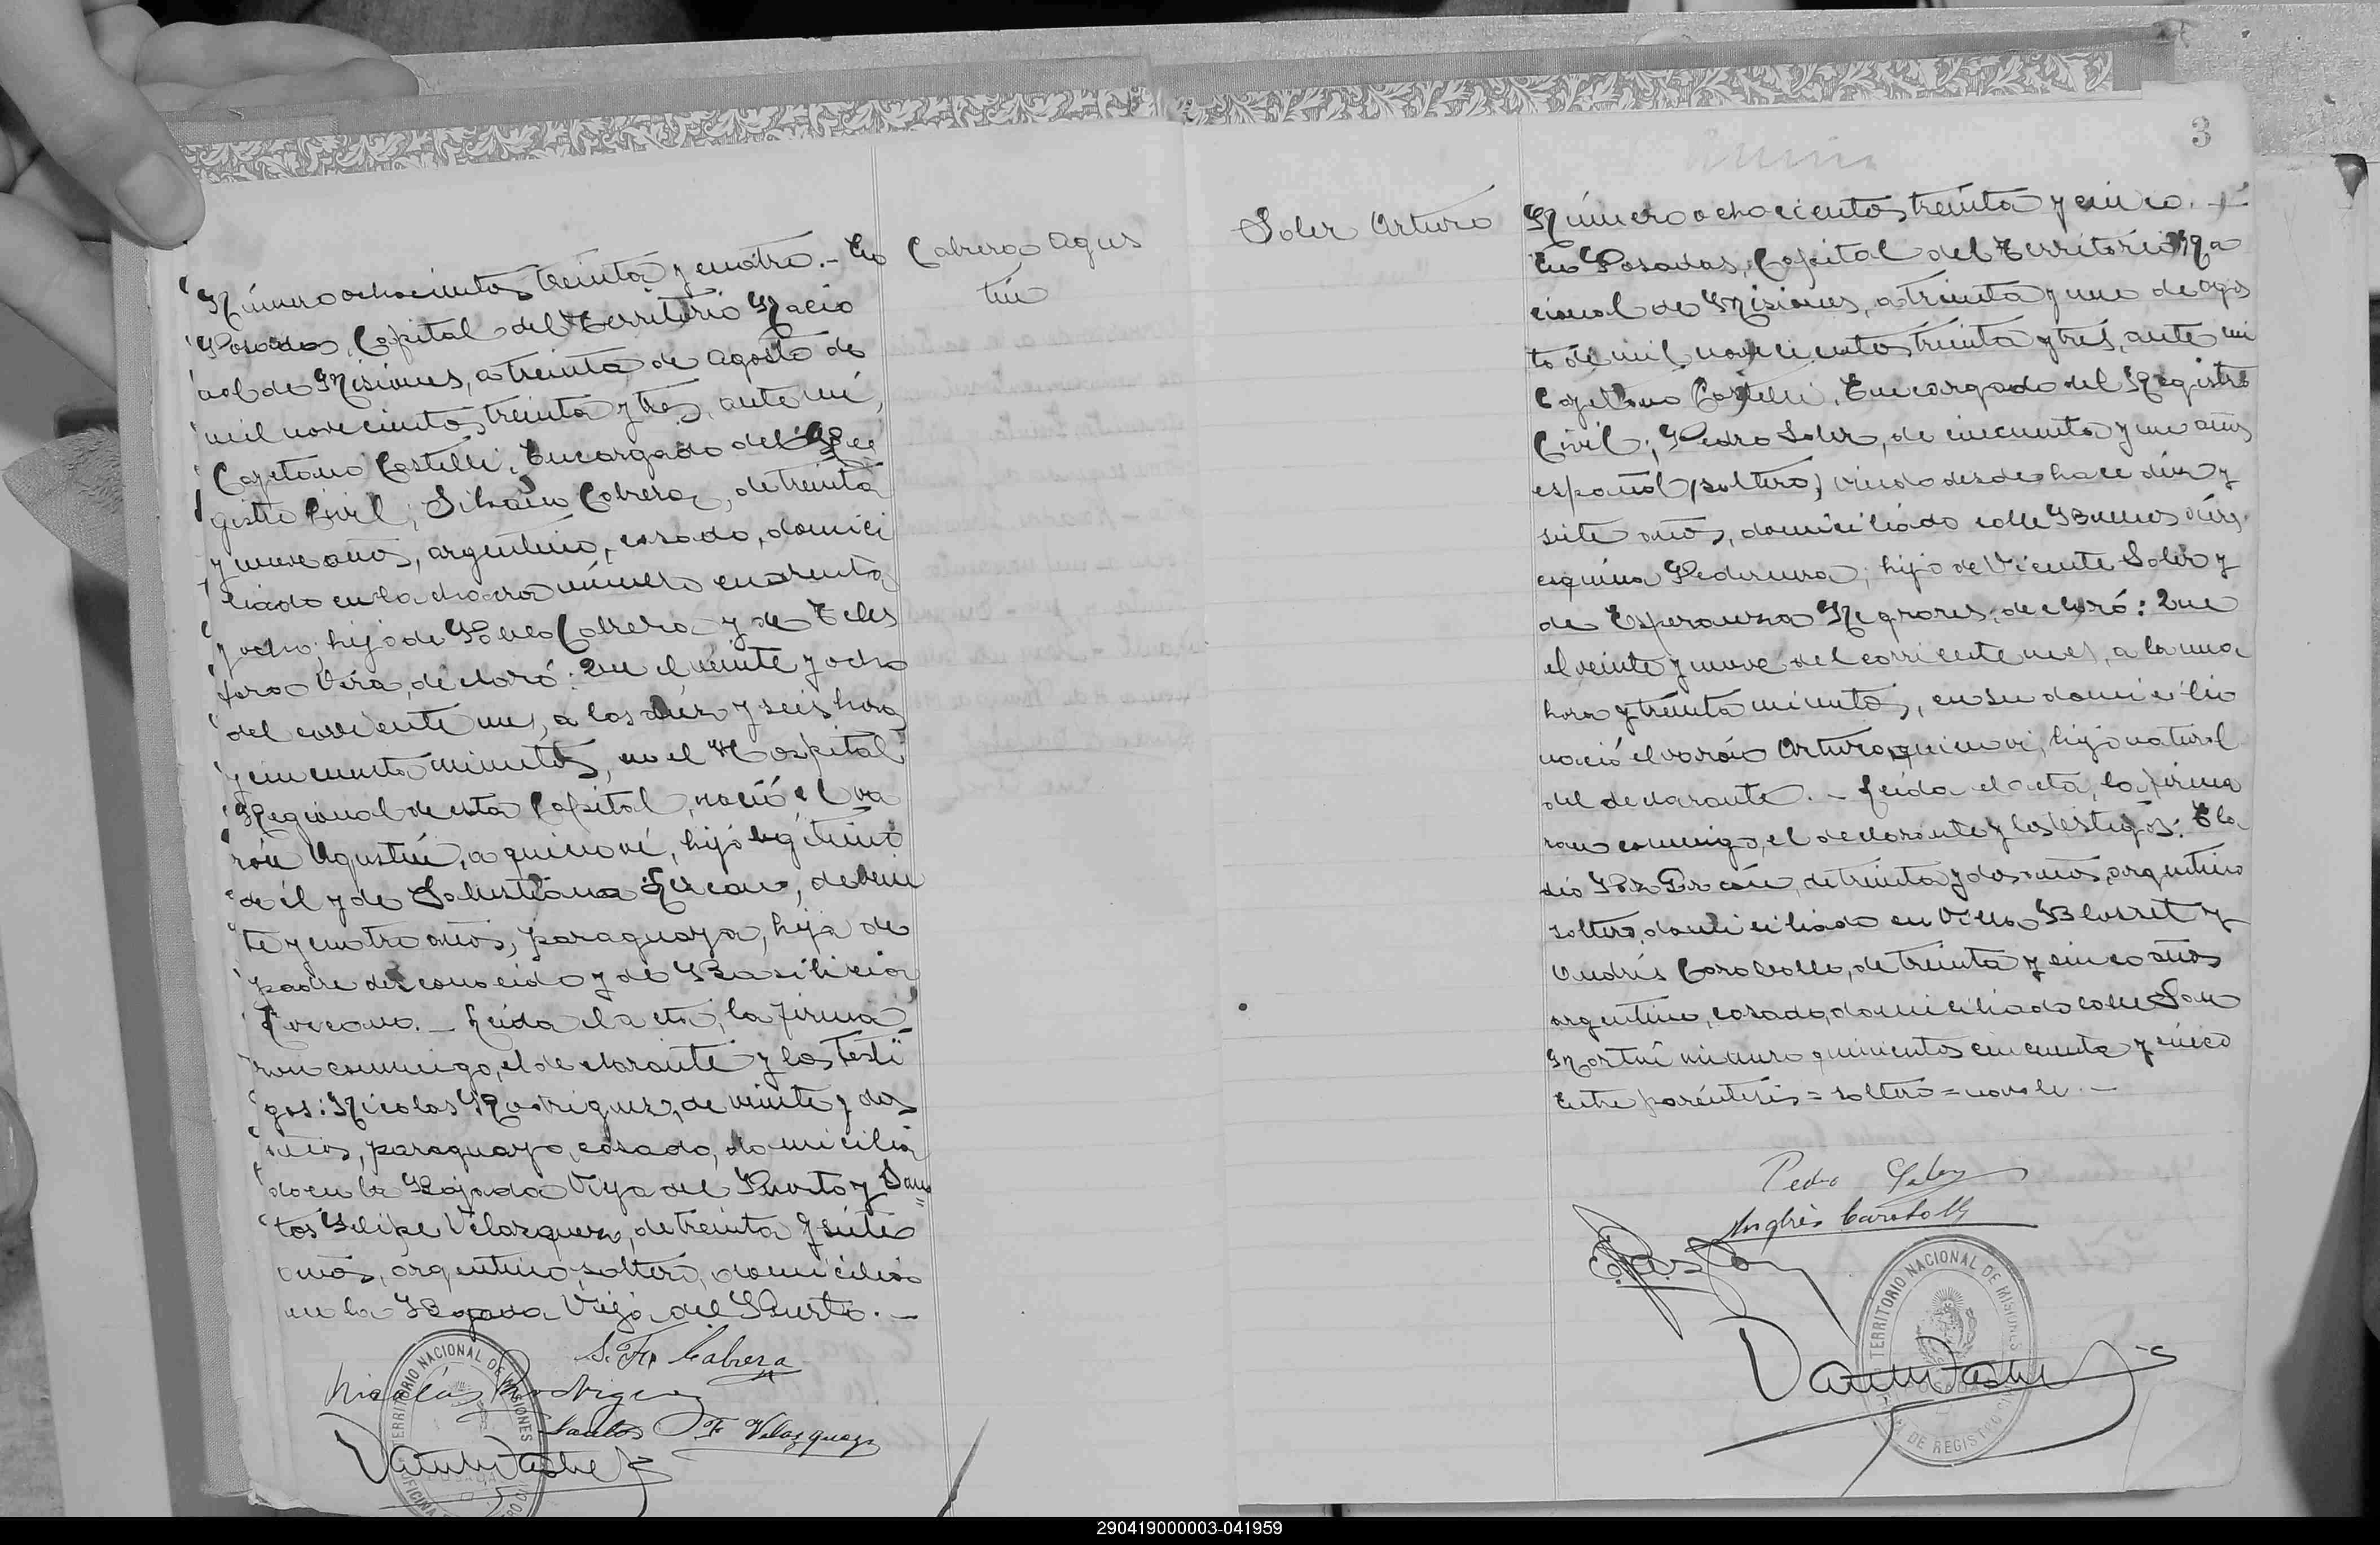 Número ochocientos treinta y cuatro.- En
Posadas, Capital del Territorio Nacio
nal de Misiones, a treinta de agosto de
mil novecientos treinta y tres, ante mí,
Cayetano Castelli, Encargado del Re
gistro Civil; Silvano Cabrera, de treinta
y nueve años, argentino, casado, domici
liado en la chacra número cuarenta
y ocho; hijo de Cabrera y de Teles
fora Vera, declaró: Que el veinte y ocho
del corriente mes, a las diez y seis horas
y cincuenta minutos, en el Hospital
Regional de esta Capital, nació el va
rón Agustín, a quien ví, hijo legítimo
de él y de Salustiana Lezcano, de vein
te y cuatro años, paraguaya, hija de
padre desconocido y de Basilicia
Lezcano.- Leida el acta, la firma
ron conmigo, el declarante y los testi
gos: Nicolas Rodriguez, de veinte y dos
años, paraguayo, casado, domicilia
do en la Bajada Vieja del Puerto y San
tos Felipe Velazquez, de treinta y siete
años, argentino, soltero, domicilio
en la Bajada Vieja del Puerto.-
S. F. Cabrera
Nicolás Rodriguez
Santos F. Velazquez
TERRITORIO NACIONAL DE MISIONES
Cabrera Agus
tín
3
Soler Arturo
Número ochocientos treinta y cinco.-
En Posadas, Capital del Territorio Na
cional de Misiones, a treinta y uno de agos
to de mil novecientos treinta y tres, ante mi
Cayetano Castelli, Encargado del Registro
Civil; Pedro Soler, de cincuenta y un años
español (soltero) viudo desde hace diez y
siete años, domiciliado calle Buenos Aires
esquina Pedernera; hijo de Vicente Soler y
de Esperanza Negrores, declaró: Que
el veinte y nueve del corriente mes, a la una
hora y treinta minutos, en su domicilio
nació el varón Arturo, a quien ví, hijo natural
del declarante.- Leida el acta, la firma
ron conmigo, el declarante y los testigos: Ela
dio de treinta y dos años, argentino
soltero, domiciliado en Villa Blosset y
Andrés Caraballo, de treinta y cinco años
argentino, casado, domiciliado calle San
Martín número quinientos cincuenta y cinco
Entre paréntesis = soltero = no vale.-
Pedro Soler
Andrés Caraballo
TERRITORIO NACIONAL DE MISIONES
POSADAS
OFICINA DE REGISTRO CIVIL
290419000003-041959